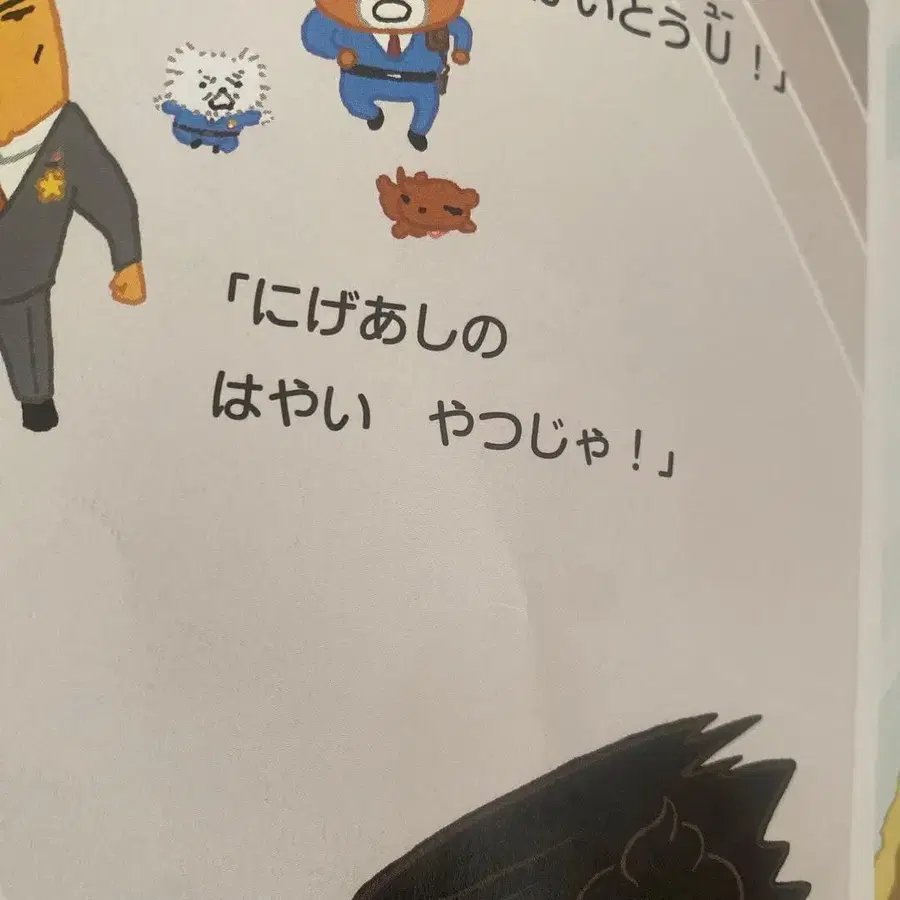 いとうU!」
「にげあしの
はやい やつじゃ!」